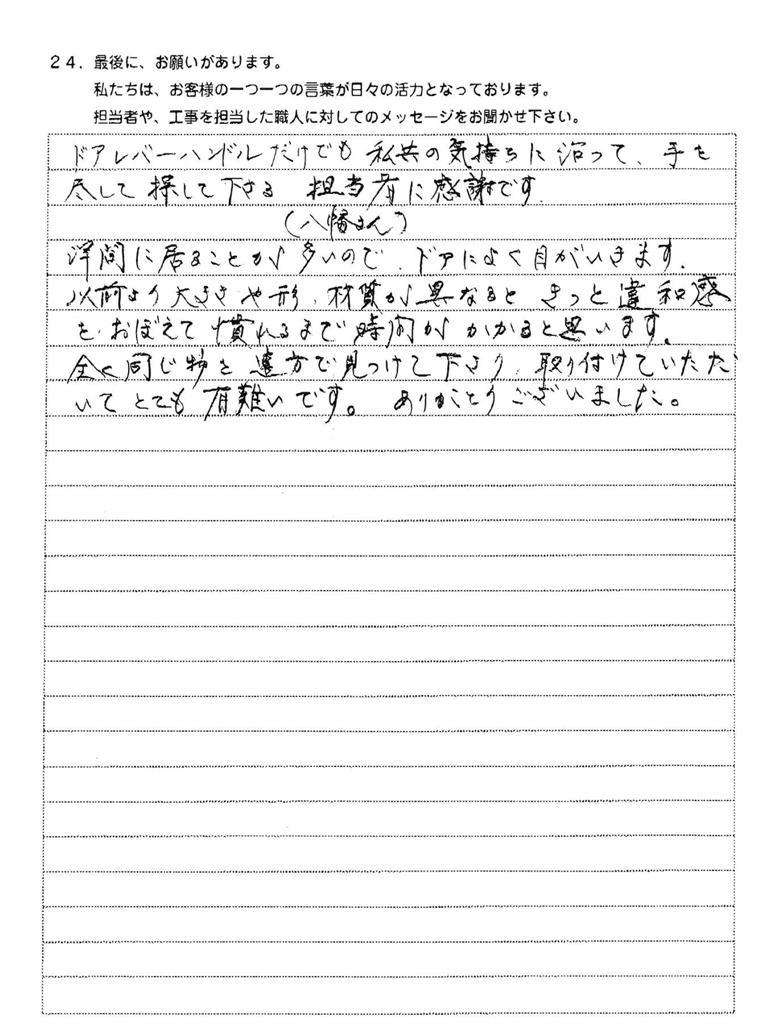 24．最後に、お願いがあります。
私たちは、お客様の一つ一つの言葉が日々の活力となっております。
担当者や、工事を担当した職人に対してのメッセージをお聞かせ下さい。
ドアレバーハンドルだけでも 私共の気持ちに沿って、手を
尽して 探して下さる 担当者に感謝です.
(八幡さん)
洋間に居ることが 多いので、ドアによく目がいきます.
以前より大きさや形、材質が 異なると きっと 違和感
を おぼえて 慣れるまで 時間が かかると思います。
全く同じ物を 遠方で見つけて下さり、取り付けていただ
いて とても 有難いです。 ありがとうございました。